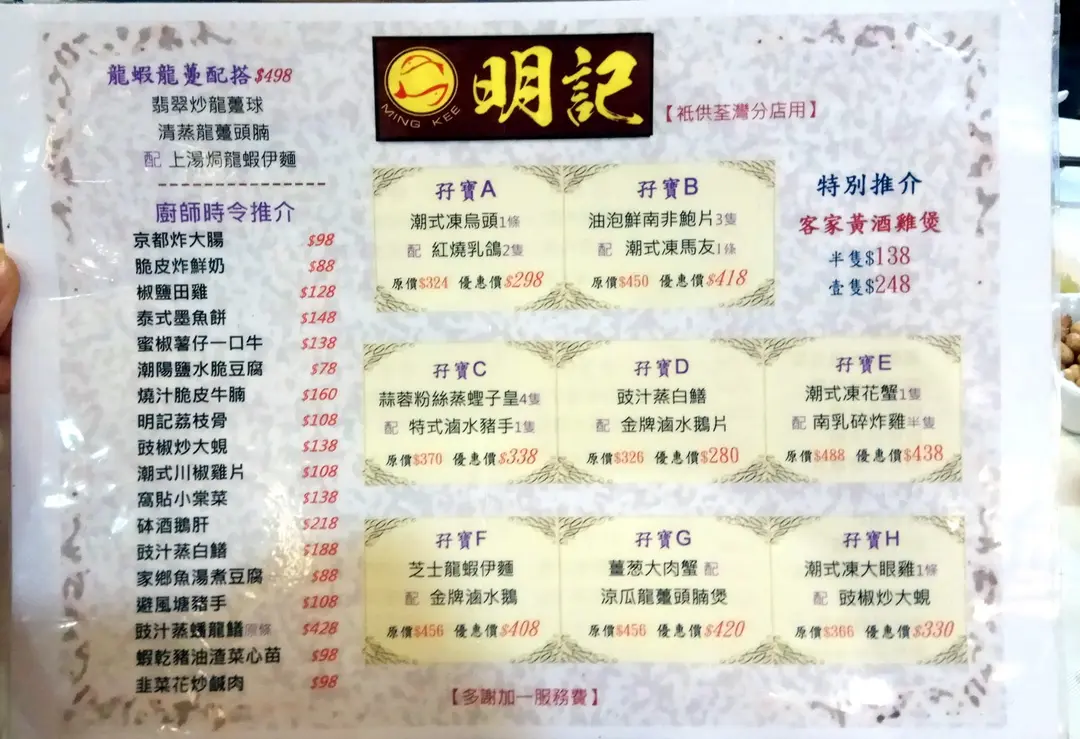 龍蝦龍躉配搭$498
翡翠炒龍躉球
清蒸龍躉頭腩
配 上湯焗龍蝦伊麵
廚師時令推介
京都炸大腸 $98
脆皮炸鮮奶 $88
椒鹽田雞 $128
泰式墨魚餅 $148
蜜椒薯仔一口牛 $138
潮陽鹽水脆豆腐 $78
燒汁脆皮牛腩 $160
明記荔枝骨 $108
豉椒炒大蜆 $138
潮式川椒雞片 $108
窩貼小棠菜 $138
砵酒鵝肝 $218
豉汁蒸白鱔 $188
家鄉魚湯煮豆腐 $88
避風塘豬手 $108
豉汁蒸蟠龍鱔原條 $428
蝦乾豬油渣菜心苗 $98
韭菜花炒鹹肉 $98
MING KEE
明記
【祇供荃灣分店用】
孖寶A
潮式凍烏頭1條
配 紅燒乳鴿2隻
原價$324 優惠價$298
孖寶B
油泡鮮南非鮑片3隻
配 潮式凍馬友1條
原價$450 優惠價$418
特別推介
客家黃酒雞煲
半隻$138
壹隻$248
孖寶C
蒜蓉粉絲蒸蟶子皇4隻
配 特式滷水豬手1隻
原價$370 優惠價$338
孖寶D
豉汁蒸白鱔
配 金牌滷水鵝片
原價$326 優惠價$280
孖寶E
潮式凍花蟹1隻
配 南乳碎炸雞半隻
原價$488 優惠價$438
孖寶F
芝士龍蝦伊麵
配 金牌滷水鵝
原價$456 優惠價$408
孖寶G
薑葱大肉蟹 配
涼瓜龍躉頭腩煲
原價$456 優惠價$420
孖寶H
潮式凍大眼雞1條
配 豉椒炒大蜆
原價$366 優惠價$330
【多謝加一服務費】